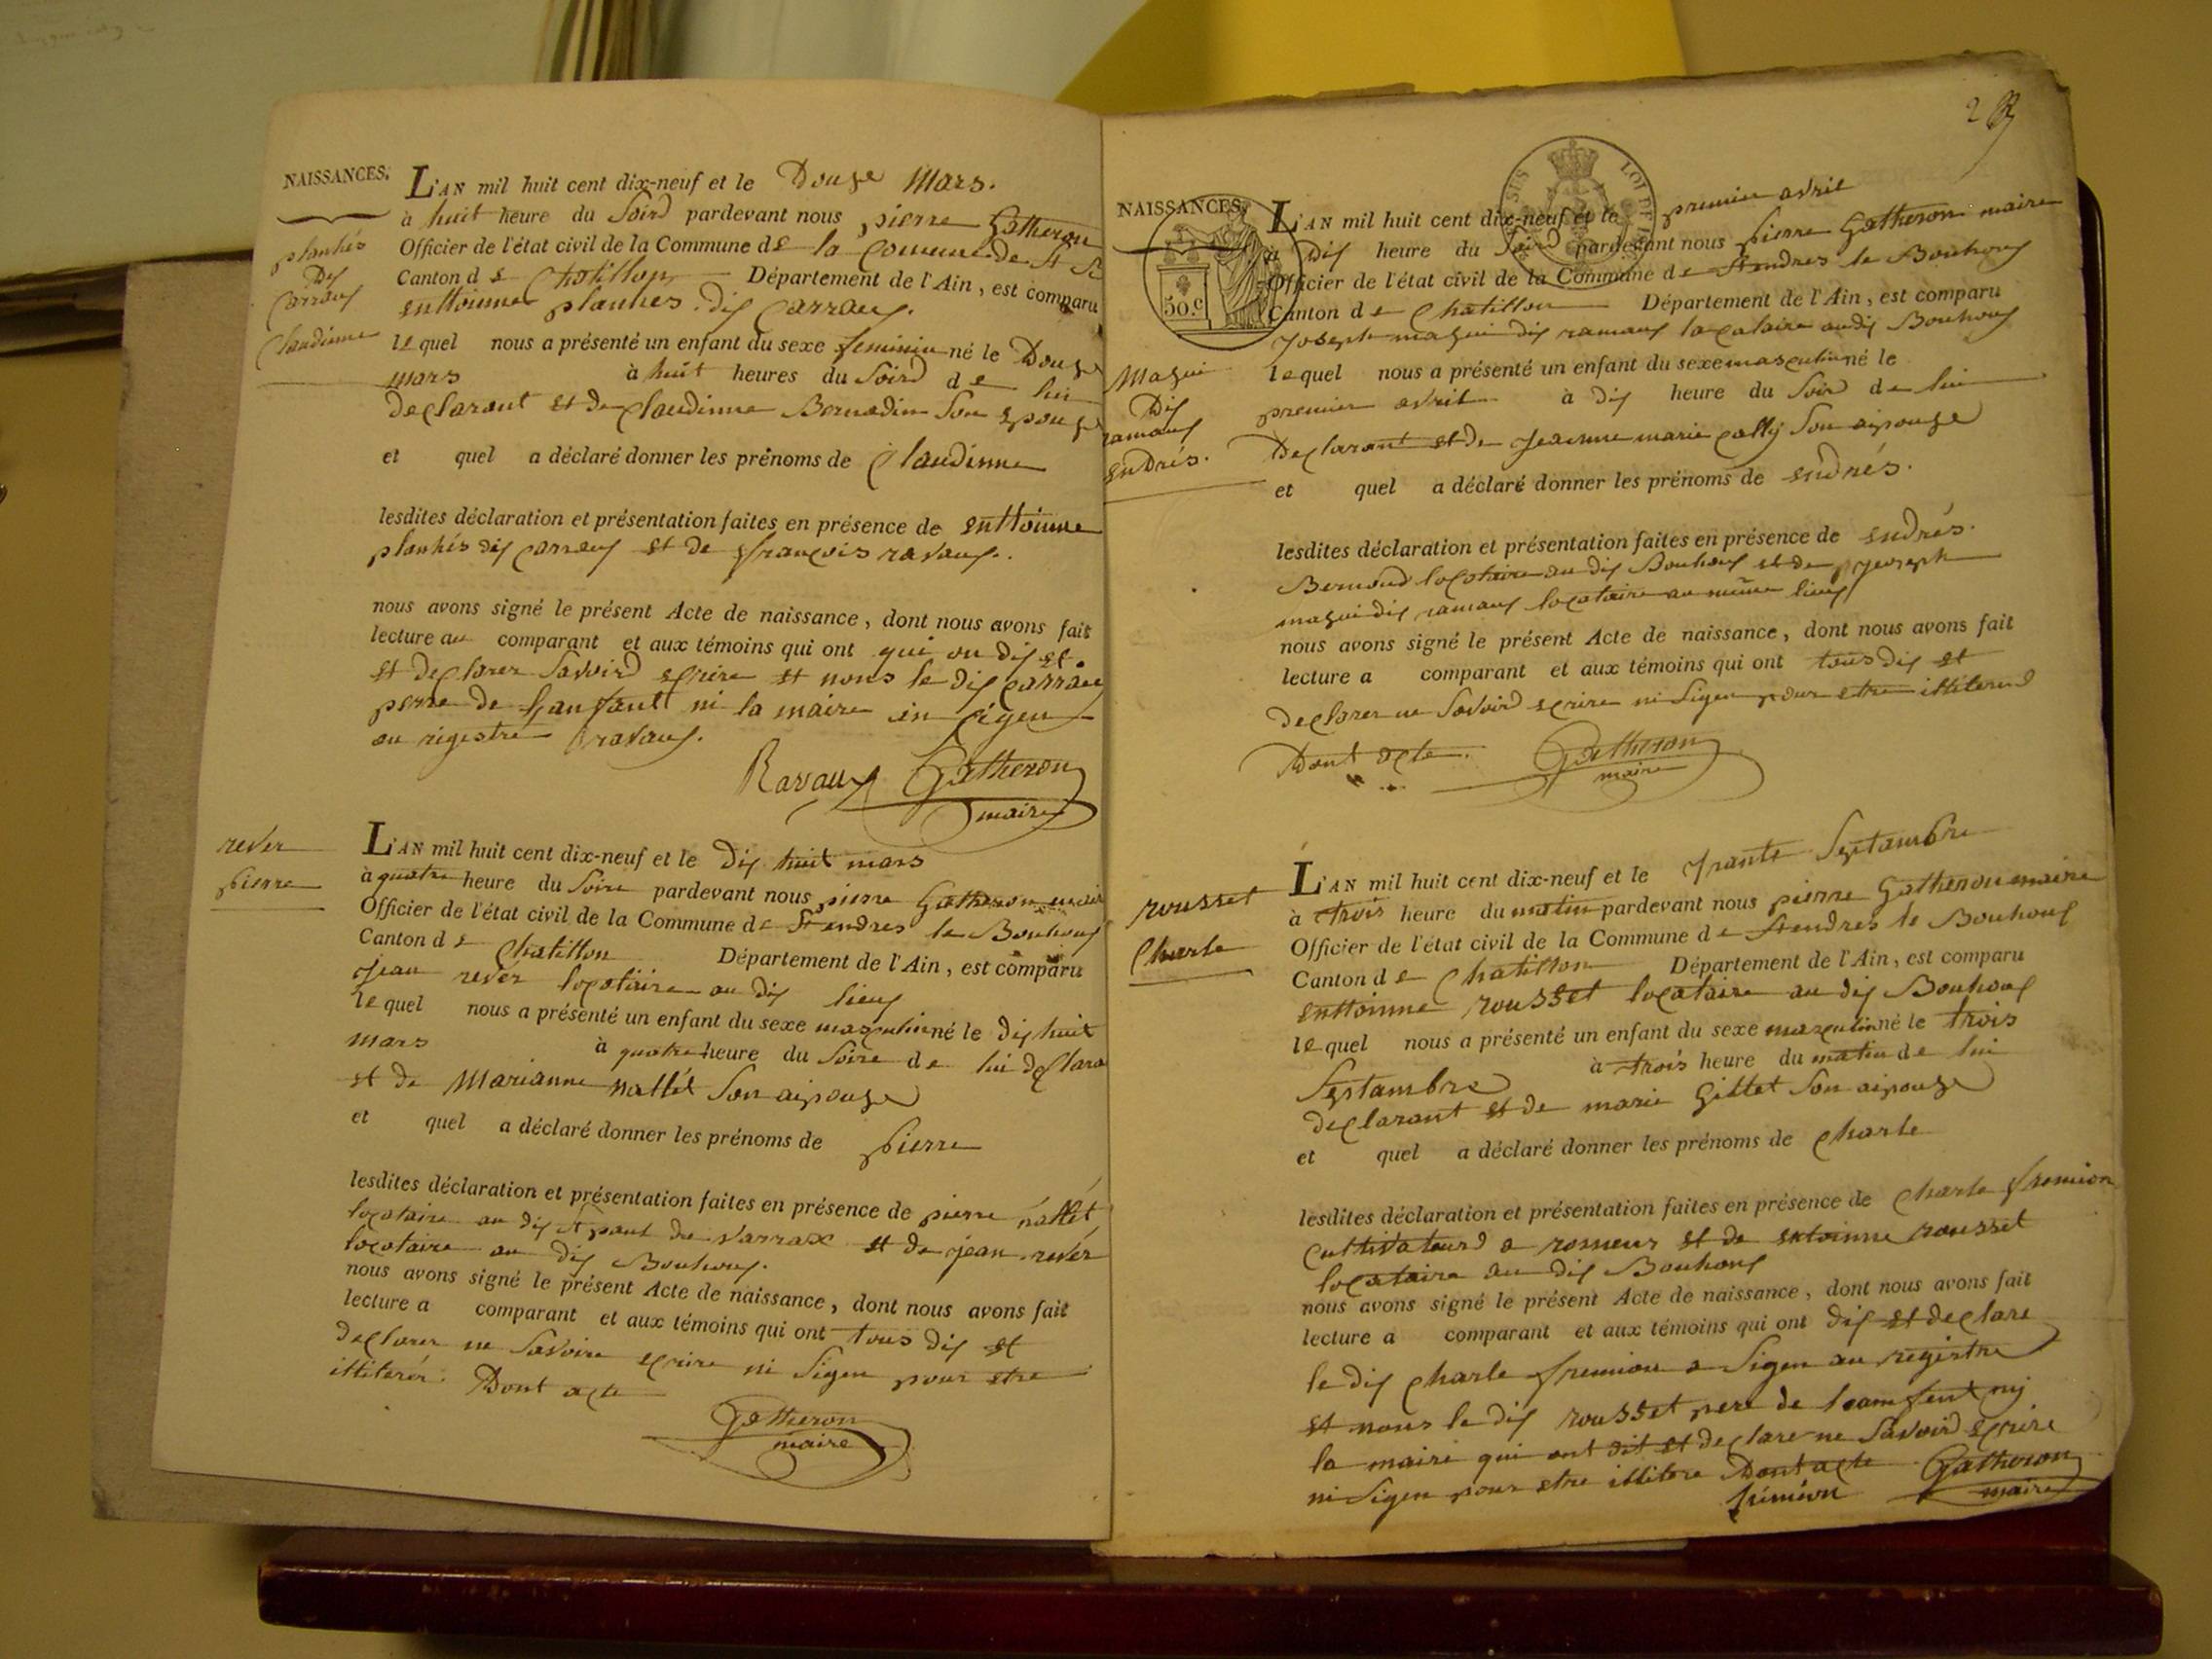 NAISSANCES.
plantiés
Dis
Carraus
Claudinne
L'AN mil huit cent dix-neuf et le Douze Mars.
à huit heure du Soird pardevant nous pierre Gatheron
Officier de l'état civil de la Commune de la Comune de St
Canton de Chatillon Département de l'Ain, est comparu
enttoinne planties dis Carraus.
lequel nous a présenté un enfant du sexe feminin né le Douze
mars à huit heures du Soird de lui
declarant et de Claudinne Bernadin Son epouze
et quel a déclaré donner les prénoms de Claudinne
lesdites déclaration et présentation faites en présence de enttoinne
plantiés dis carraus et de françois ravaus.
nous avons signé le présent Acte de naissance, dont nous avons fait
lecture au comparant et aux témoins qui ont qui on dis et.
et declarer Savoird ecrire et nons le dis carraus
perre de Lanfant ni la maire en Sigeu
au regestre ravaus.
Ravaux Gatheron
maire
rever
pierre
L'AN mil huit cent dix-neuf et le dis huit mars
à quatre heure du Soire pardevant nous pierre Gatheron maire
Officier de l'état civil de la Commune de St endres le Bouhous
Canton de Chatillon Département de l'Ain, est comparu
jean rever locataire au dis lieus
lequel nous a présenté un enfant du sexe masculin né le dis huit
mars à quatre heure du Soire de lui declara
et de Marianne nallét Son aipouze
et quel a déclaré donner les prénoms de pierre
lesdites déclaration et présentation faites en présence de pierre nallét
locataire au dis St paul de varrax et de jean revér
locataire au dis Bouhous.
nous avons signé le présent Acte de naissance, dont nous avons fait
lecture a comparant et aux témoins qui ont tous dis et
declarer ne Savoire ecrire ni Sigen pour etre
illiterér. Dont acte
Gatheron
maire
NAISSANCES.
50.c
LOI DE
Magui
Dis
ramaus
endrés.
L'AN mil huit cent dix-neuf et le premier avril
à dis heure du Soird pardevant nous pierre Gatheron maire
Officier de l'état civil de la Commune de St endres le Bouhous
Canton de Chatillon Département de l'Ain, est comparu
joseph magui dis ramaus locataire audis Bouhous
lequel nous a présenté un enfant du sexe masculin né le
premier avril à dis heure du Soird de lui
Declarant et de jeanne marie cally Son aipouze
et quel a déclaré donner les prénoms de endrés.
lesdites déclaration et présentation faites en présence de endrés.
Bernoud locataire au dis Bouhous et de joeseph
magui dis ramaus locataire au même lieus
nous avons signé le présent Acte de naissance, dont nous avons fait
lecture a comparant et aux témoins qui ont tous dis et
declarer ne Savoird ecrire ni Sigen pour etre illiterend
Dont acte. Gatheron
maire
rousset
Charle
L'AN mil huit cent dix-neuf et le trante Septambre
à trois heure du matin pardevant nous pierre Gatheron maire
Officier de l'état civil de la Commune de St endres le Bouhous
Canton de Chatillon Département de l'Ain, est comparu
enttoinne rousset locataire au dis Bouhous
lequel nous a présenté un enfant du sexe masculin né le trois
Septambre à trois heure du matin de lui
declarant et de marie Gillet Son aipouze
et quel a déclaré donner les prénoms de Charle
lesdites déclaration et présentation faites en présence de Charle fremion
Cultivateurd a romeur et de entoinne rousset
locataire au dis Bouhous
nous avons signé le présent Acte de naissance, dont nous avons fait
lecture a comparant et aux témoins qui ont dis et declare
le dis Charle fremion a Sigen au registre
et nons le dis rousset pere de leamfent nij
la maire qui ont dit et declare ne Savoird ecrire
ni Sigen pour etre illitere Dont acte Gatheron
frémion maire